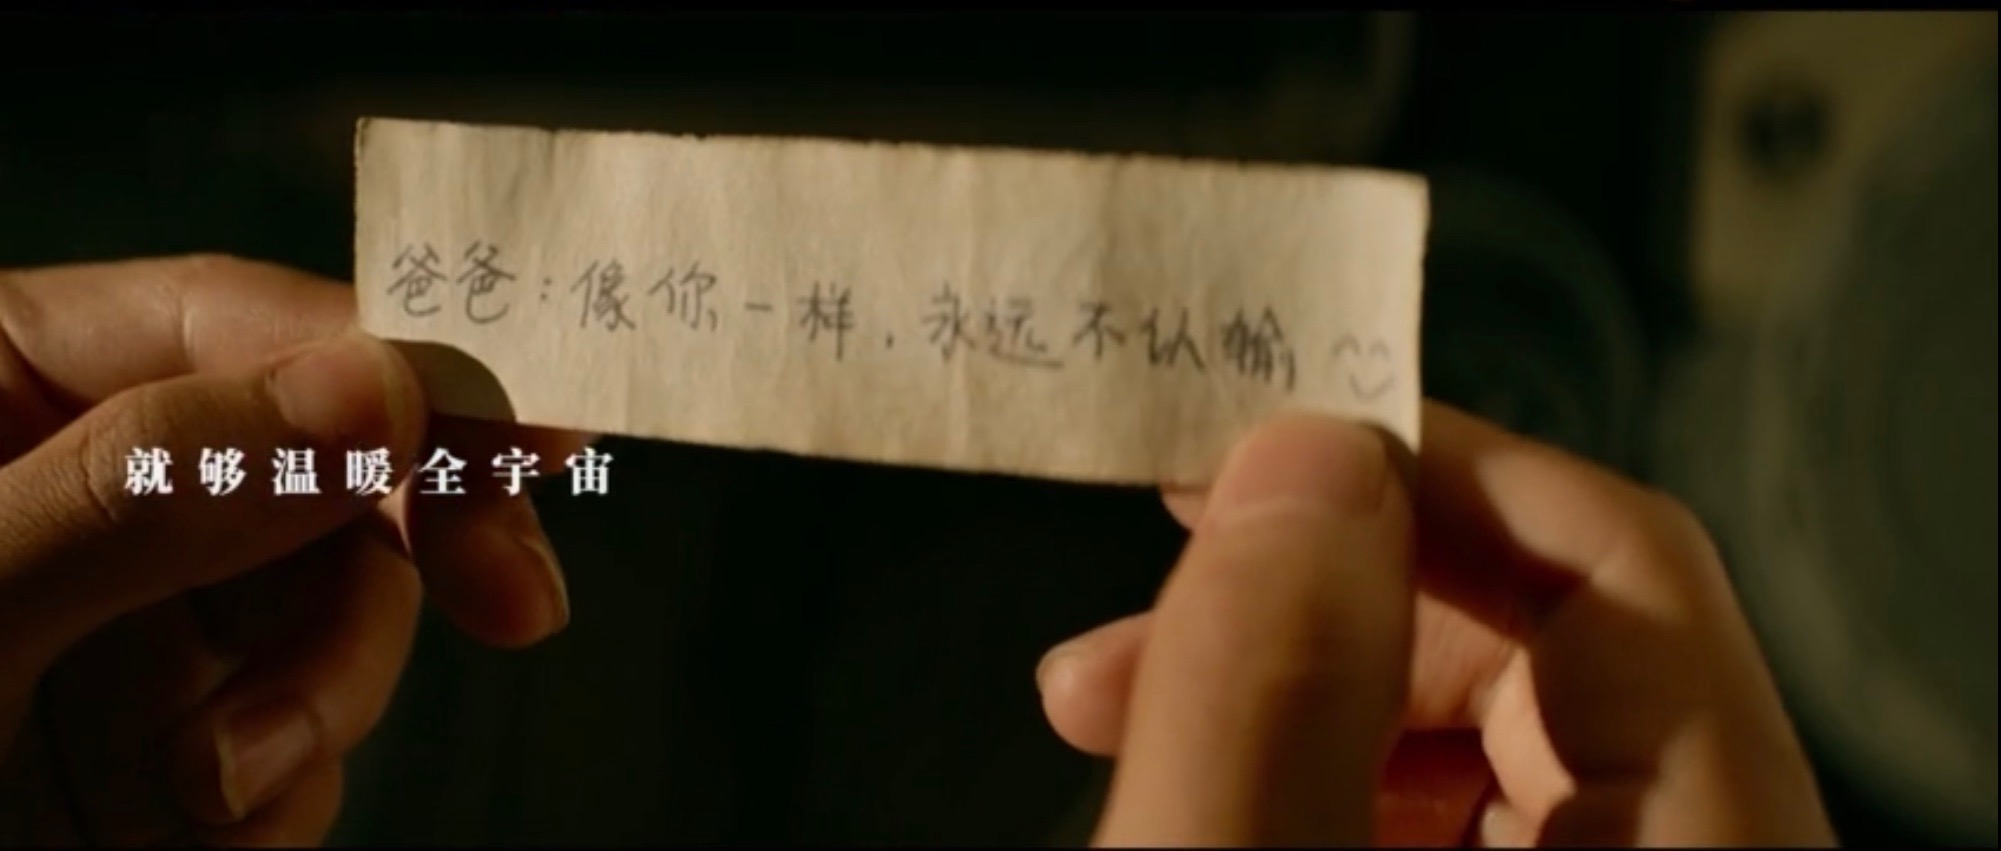 爸爸：像你一样，永远不认输
就够温暖全宇宙